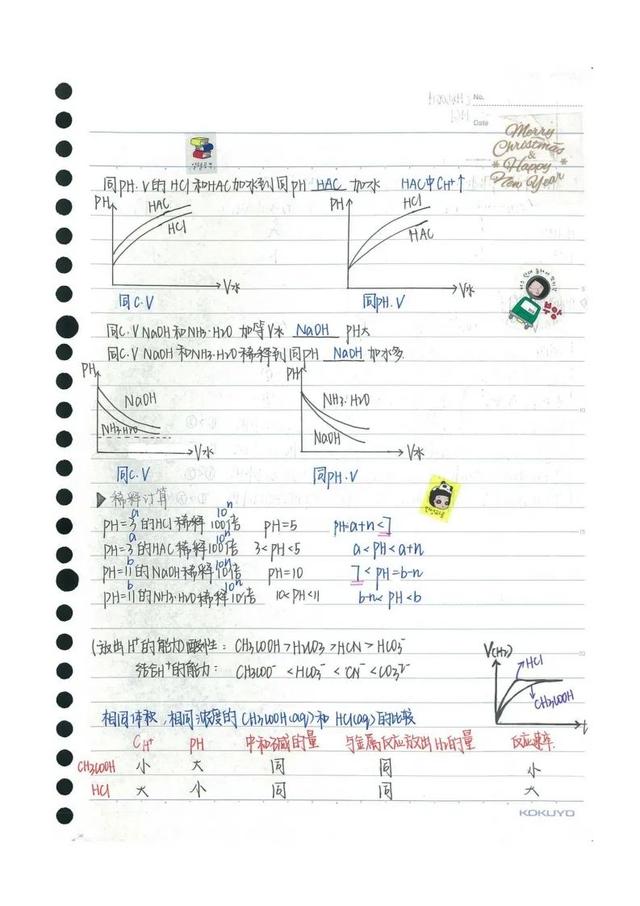 No.
Date
Merry
Christmas
&
Happy
New Year
同pH.V的HCl和HAC加水到同PH HAC 加水 HAC中CH⁺↑
PH HAC HCl V水
PH HCl HAC V水
同C.V 同pH.V
同C.V NaOH和NH₃·H₂O 加等V水 NaOH PH大
同C.V NaOH和NH₃·H₂O稀释到同PH NaOH 加水多
PH NaOH NH₃·H₂O V水
PH NH₃·H₂O NaOH V水
同C.V 同pH.V
▶稀释计算
a 10ⁿ
pH=3的HCl稀释100倍 pH=5 pH=a+n<7
a 10ⁿ
pH=3的HAC稀释100倍 3<pH<5 a<pH<a+n
b 10ⁿ
pH=11的NaOH稀释10倍 pH=10 7<pH=b-n
b 10ⁿ
pH=11的NH₃·H₂O稀释10倍 10<pH<11 b-n<pH<b
(放出H⁺的能力)酸性: CH₃COOH>H₂CO₃>HCN>HCO₃⁻
结合H⁺的能力: CH₃COO⁻<HCO₃⁻<CN⁻<CO₃²⁻
V(H₂) HCl CH₃COOH t
相同体积,相同浓度的CH₃COOH(aq)和HCl(aq)的比较
CH⁺ pH 中和碱的量 与金属反应放出H₂的量 反应速率
CH₃COOH 小 大 同 同 小
HCl 大 小 同 同 大
KOKUYO